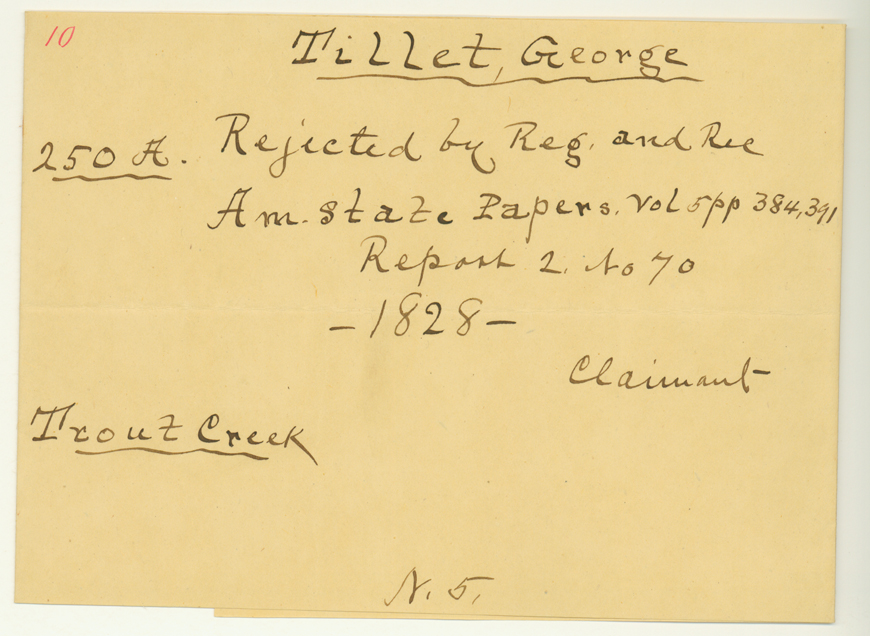 10
Tillet, George
250 A. Rejected by Reg. and Rec
Am. State Papers. Vol 5 pp 384, 391
Report 2. No 70
- 1828 -
Claimant
Trout Creek
N. 5.